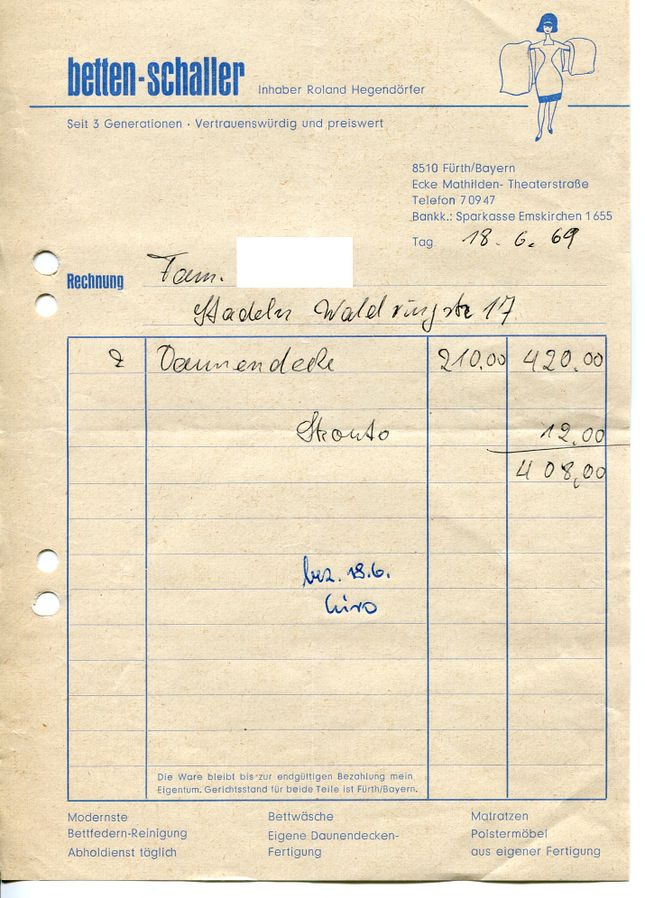 betten-schaller Inhaber Roland Hegendörfer
Seit 3 Generationen · Vertrauenswürdig und preiswert
8510 Fürth/Bayern
Ecke Mathilden- Theaterstraße
Telefon 7 09 47
Bankk.: Sparkasse Emskirchen 1 655
Tag 18. 6. 69
Rechnung Fam.
Stadeln Waldringstr 17
2 Daunendecke 210,00 420,00
Skonto 12,00
408,00
bez. 18.6.
Giro
Die Ware bleibt bis zur endgültigen Bezahlung mein
Eigentum. Gerichtsstand für beide Teile ist Fürth/Bayern.
Modernste Bettwäsche Matratzen
Bettfedern-Reinigung Eigene Daunendecken- Polstermöbel
Abholdienst täglich Fertigung aus eigener Fertigung